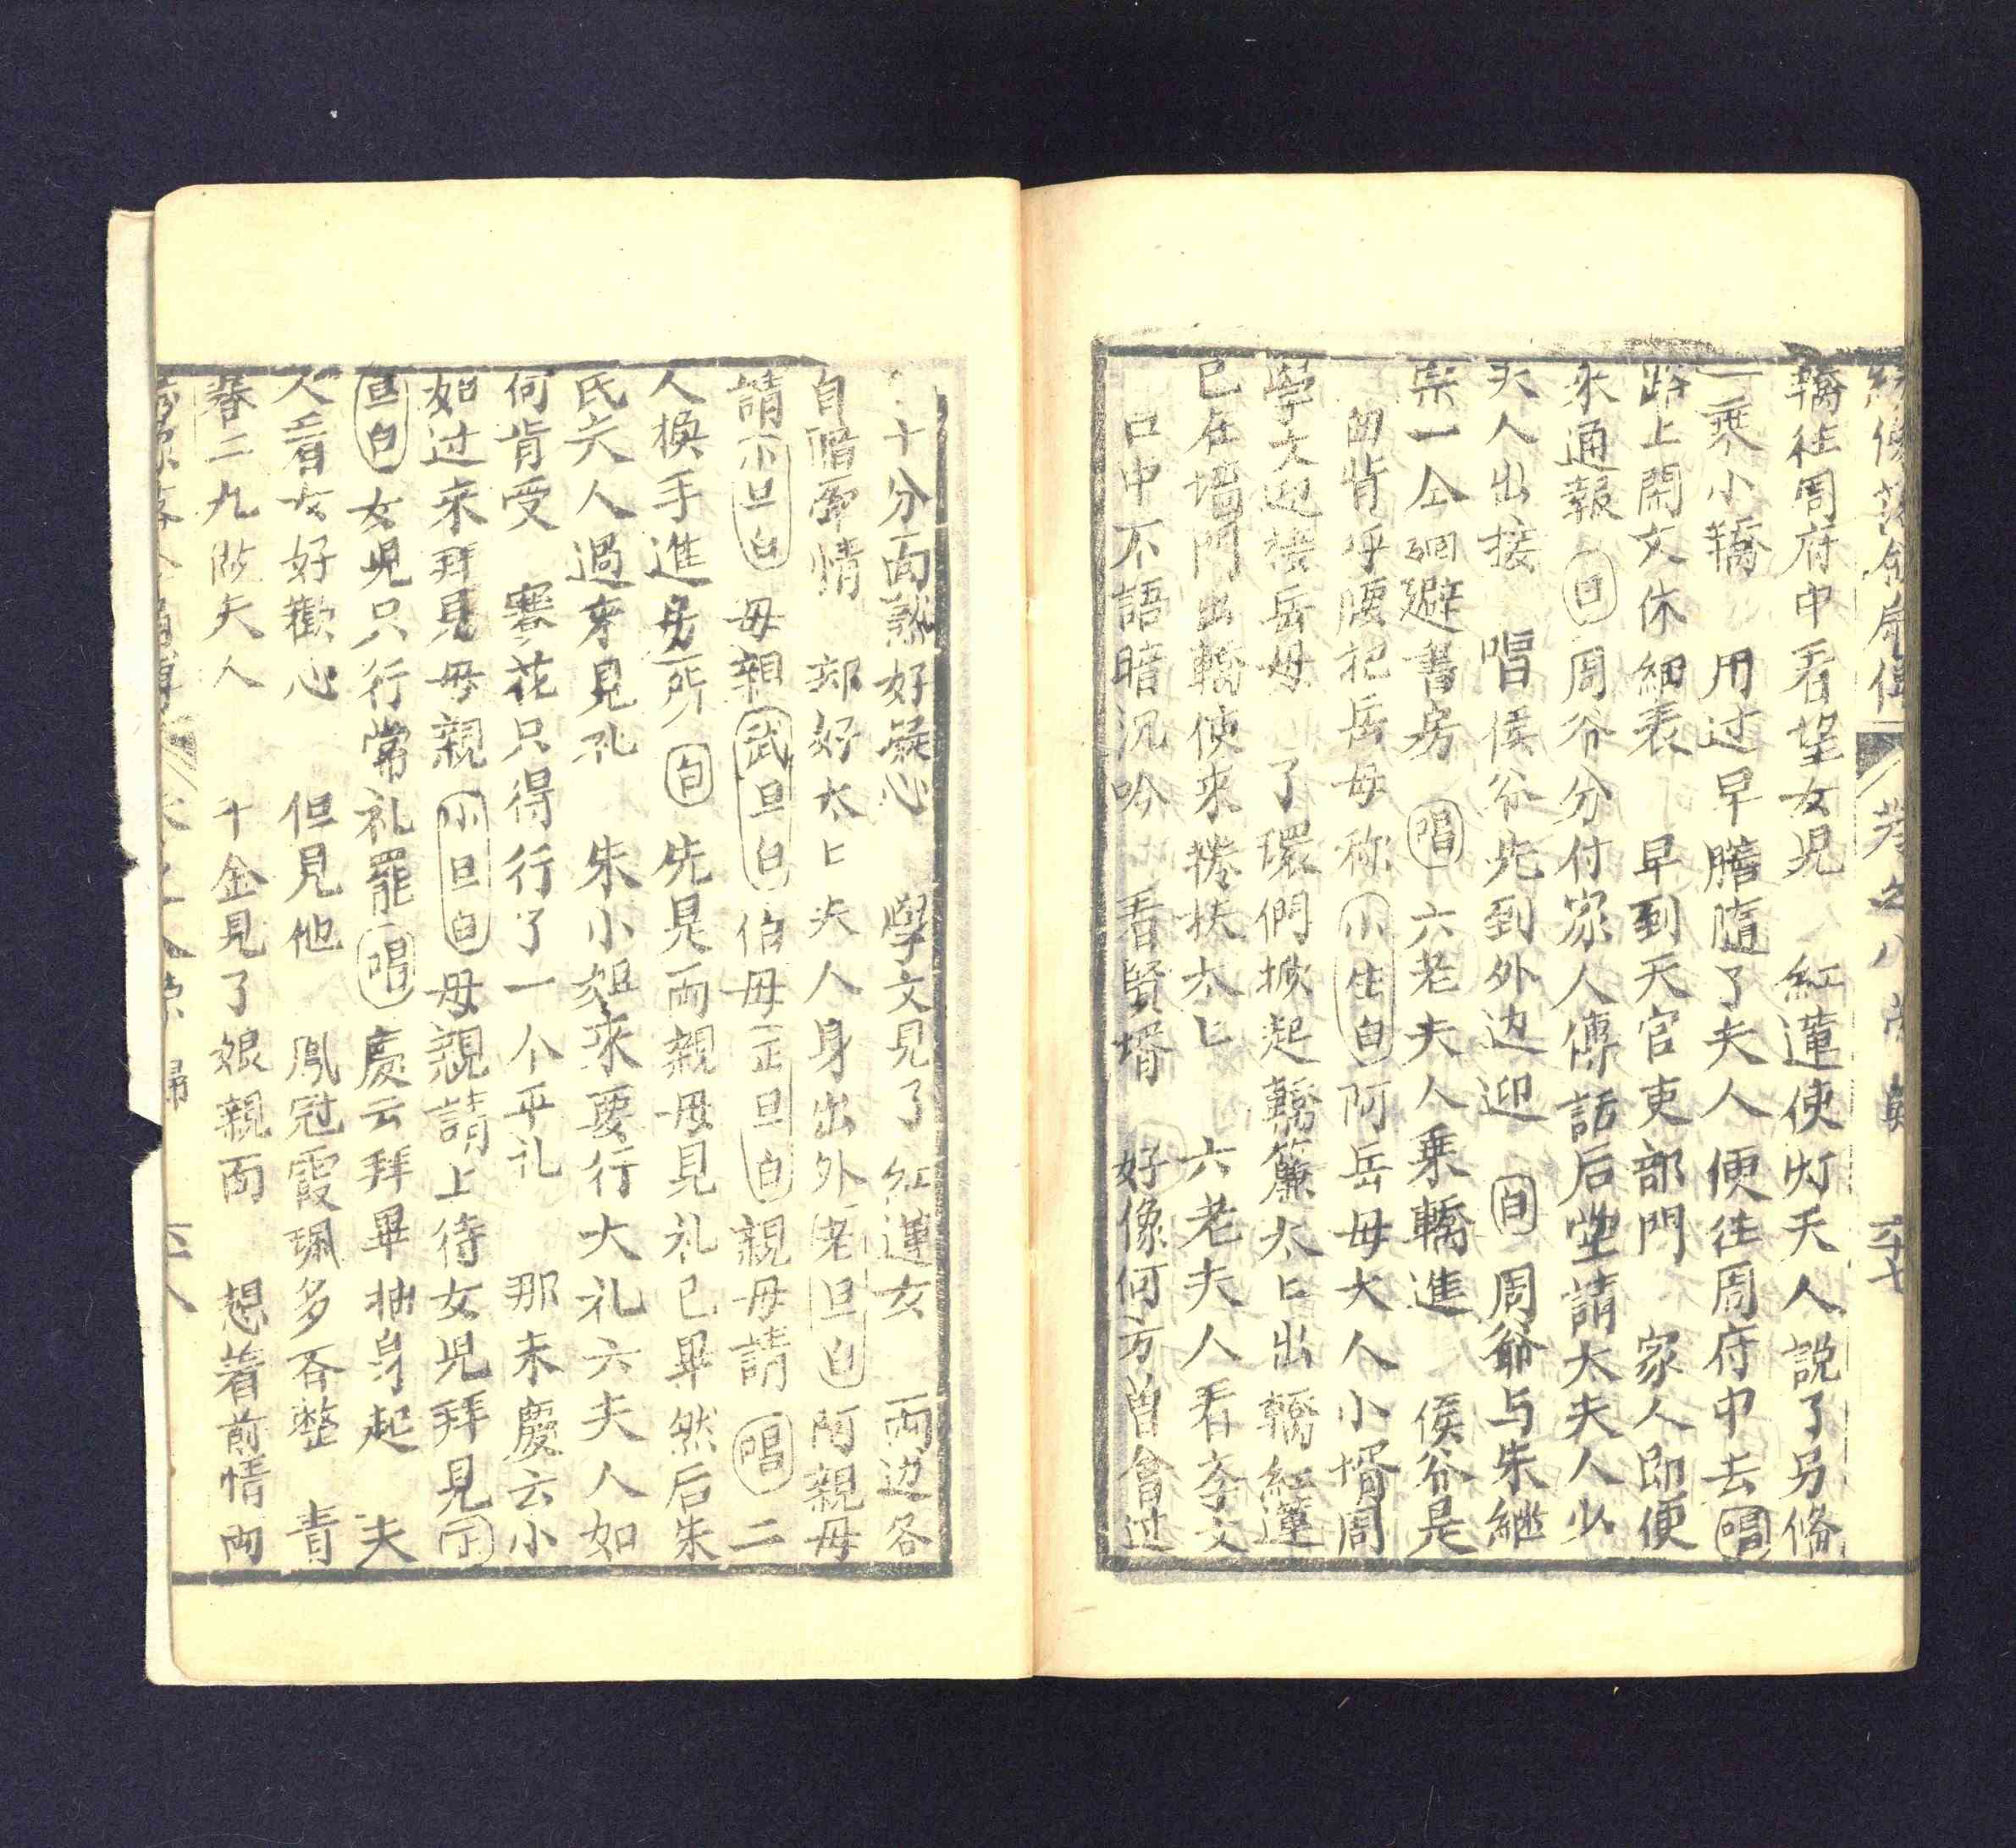 轎往周府中看望女児　紅蓮使灯夫人說了另俻
一乘小轎　用过早膳隨了夫人便往周府中去唱
路上閑文休細表　早到天官吏部門　家人即便
來通報　白周爷分付家人傳話后堂請太夫人少
夫人出接　唱侯爷先到外边迎　白周爺与朱継
宗一仝廻避書房　唱六老夫人乗轎進　侯爷是
曲背呼腰把岳母称　小生白阿岳母大人小壻周
學文迎接岳母　了環們掀起轎簾太匕出轎紅蓮
已在墻門出轎使来搀扶太匕　六老夫人看孝文
口中不語暗沉吟　看賢壻　好像何方曽會过
十分面熟好疑心　學文見了紅蓮女　兩边各
自暗留情　郏好太匕夫人身出外老旦白阿親母
請小旦白母親武旦白伯母正旦白親母請　唱二
人換手進房所　白先是両親母見礼已畢然后朱
氏夫人過來見礼　朱小姐來要行大礼六夫人如
何肯受　賽花只得行了一个平礼　那未慶云小
如过来拜見母親　小旦白母親請上待女児拜見正
旦白女児只行常礼罷唱慶云拜畢抽身起　夫
人看女好歡心　但見他　鳳冠霞珮多齐整　青
春二九傚夫人　千金見了娘親面　想着前情両